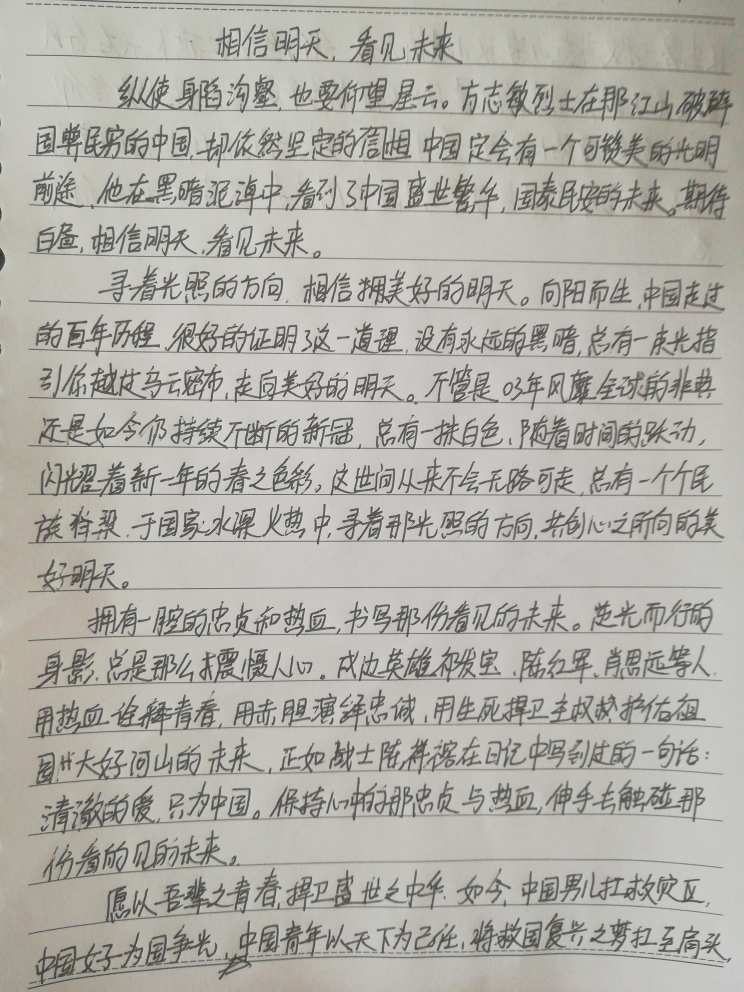 相信明天，看见未来
纵使身陷沟壑，也要仰望星云。方志敏烈士在那江山破碎
国弊民穷的中国，却依然坚定的信相 中国定会有一个可赞美的光明
前途，他在黑暗泥淖中，看到了中国盛世繁华，国泰民安的未来。期待
白昼，相信明天，看见未来。
寻着光照的方向，相信拥美好的明天。向阳而生，中国走过
的百年历程，很好的证明了这一道理，没有永远的黑暗，总有一束光指
引你越过乌云密布，走向美好的明天。不管是03年风靡全球的非典
还是如今仍持续不断的新冠，总有一抹白色，随着时间的跃动，
闪耀着新一年的春之色彩。这世间从来不会无路可走，总有一个个民
族脊梁，于国家水深火热中，寻着那光照的方向，共创心之所向的美
好明天。
拥有一腔的忠贞和热血，书写那份看见的未来。逆光而行的
身影，总是那么震慑人心。戍边英雄祁发宝、陈红军、肖思远等人，
用热血诠释青春，用赤胆演绎忠诚，用生死捍卫主权 护佑祖
国 大好河山的未来，正如战士陈祥榕在日记中写到过的一句话：
清澈的爱，只为中国。保持心中的那忠贞与热血，伸手去触碰那
份看的见的未来。
愿以吾辈之青春，捍卫盛世之中华。如今，中国男儿扛救灾区，
中国女子为国争光，中国青年以天下为己任，将救国复兴之梦扛至肩头，